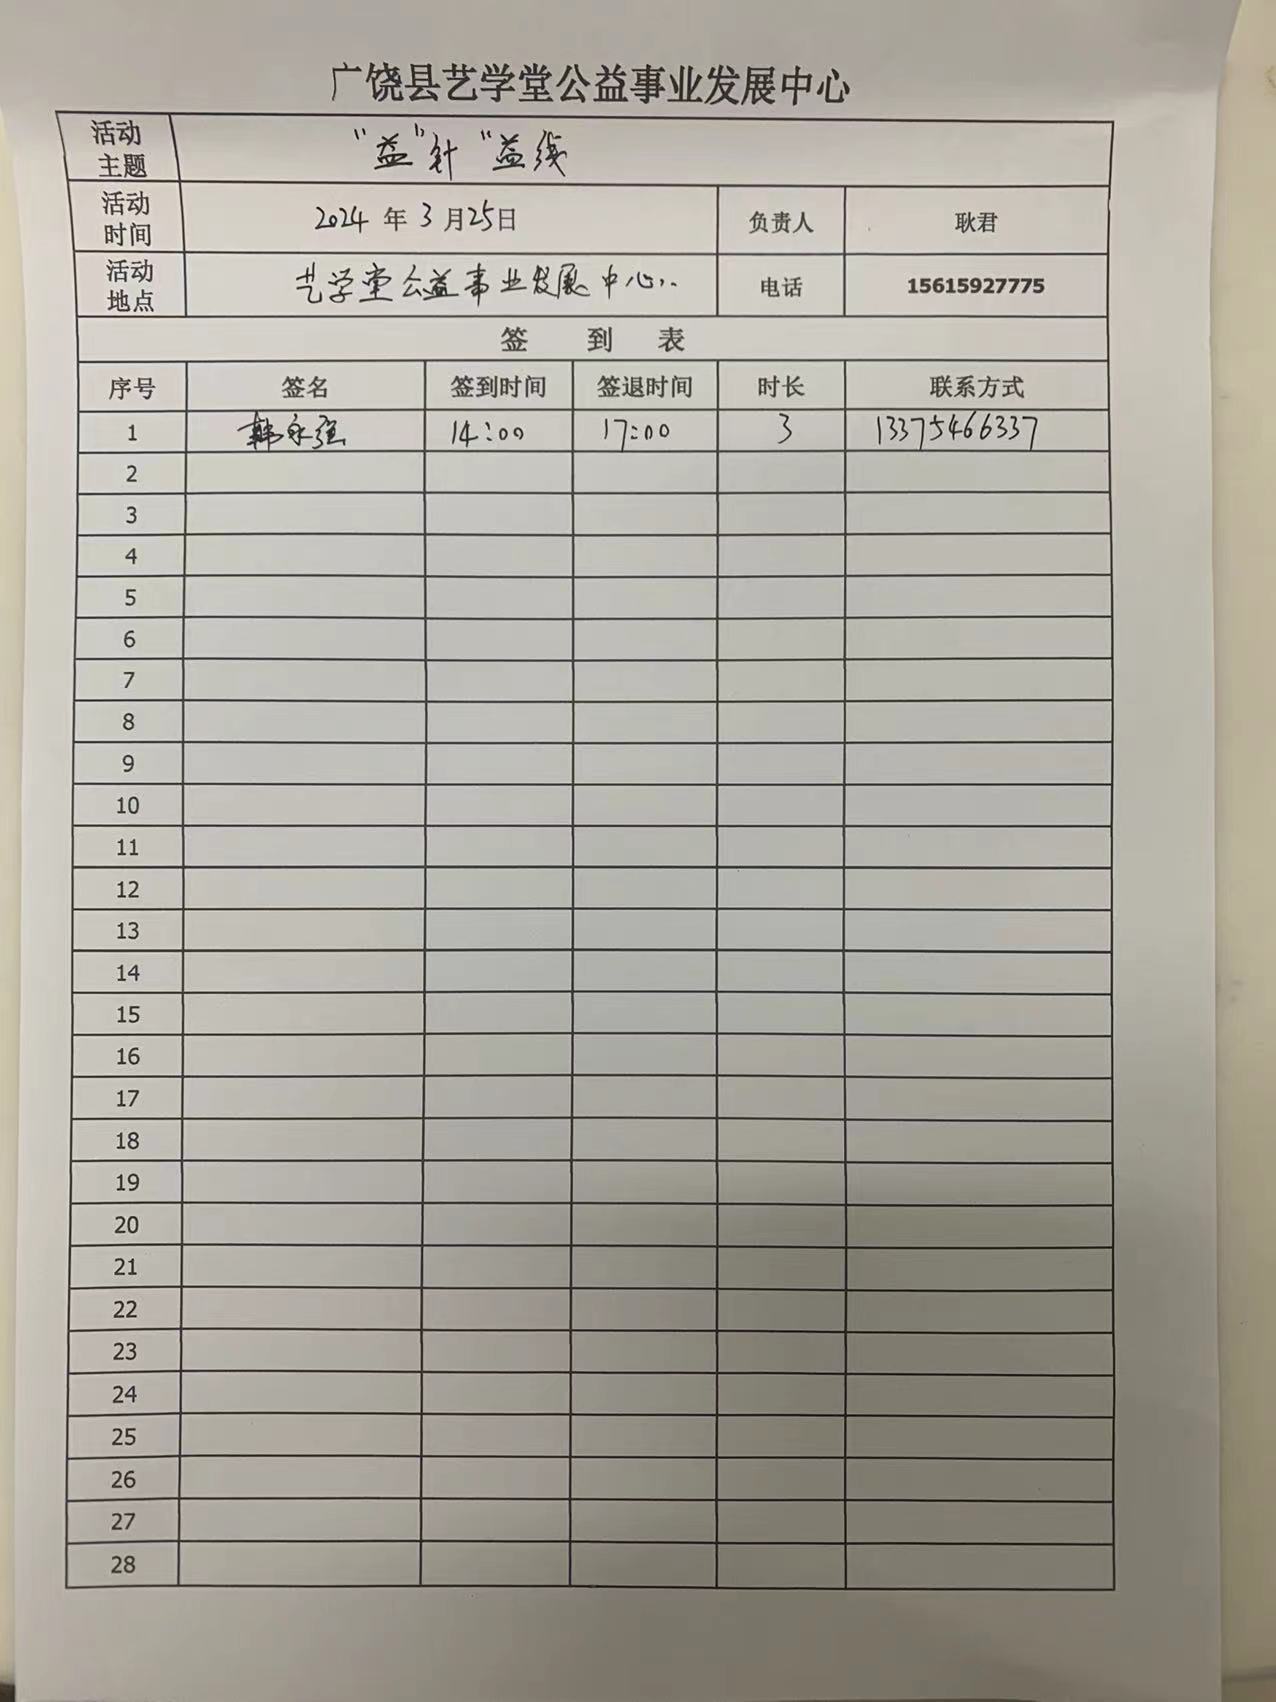 广饶县艺学堂公益事业发展中心
活动主题 “益”针“益线
活动时间 2024 年 3 月 25日 负责人 耿君
活动地点 艺学堂公益事业发展中心 电话 15615927775
签 到 表
序号 签名 签到时间 签退时间 时长 联系方式
1 韩永强 14:00 17:00 3 13375466337
2
3
4
5
6
7
8
9
10
11
12
13
14
15
16
17
18
19
20
21
22
23
24
25
26
27
28